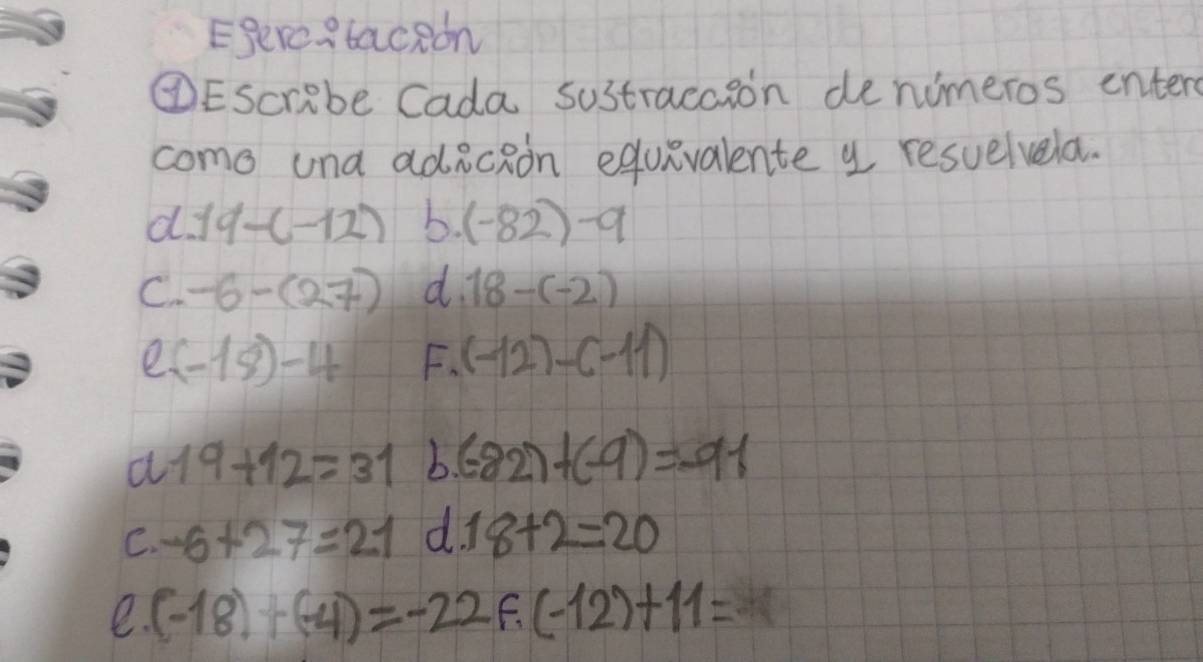 Ejercitación
① Escribe Cada sustracción de números enter
como una adición equivalente y resuelvela.
a. 19-(-12) b. (-82)-9
c. -6-(27) d. 18-(-2)
e. (-18)-4 F. (-12)-(-11)
a. 19+12=31 b. (-82)+(-9)=-91
c. -6+27=21 d. 18+2=20
e. (-18)+(-4)=-22 F. (-12)+11=